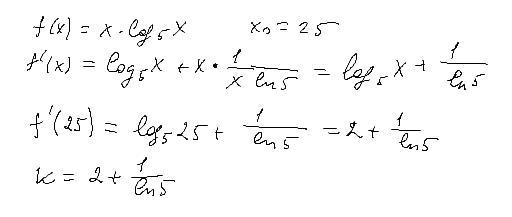 f(x) = x · log₅ x    x₀ = 25
f'(x) = log₅ x + x · 1/(x ln 5) = log₅ x + 1/(ln 5)
f'(25) = log₅ 25 + 1/(ln 5) = 2 + 1/(ln 5)
k = 2 + 1/(ln 5)